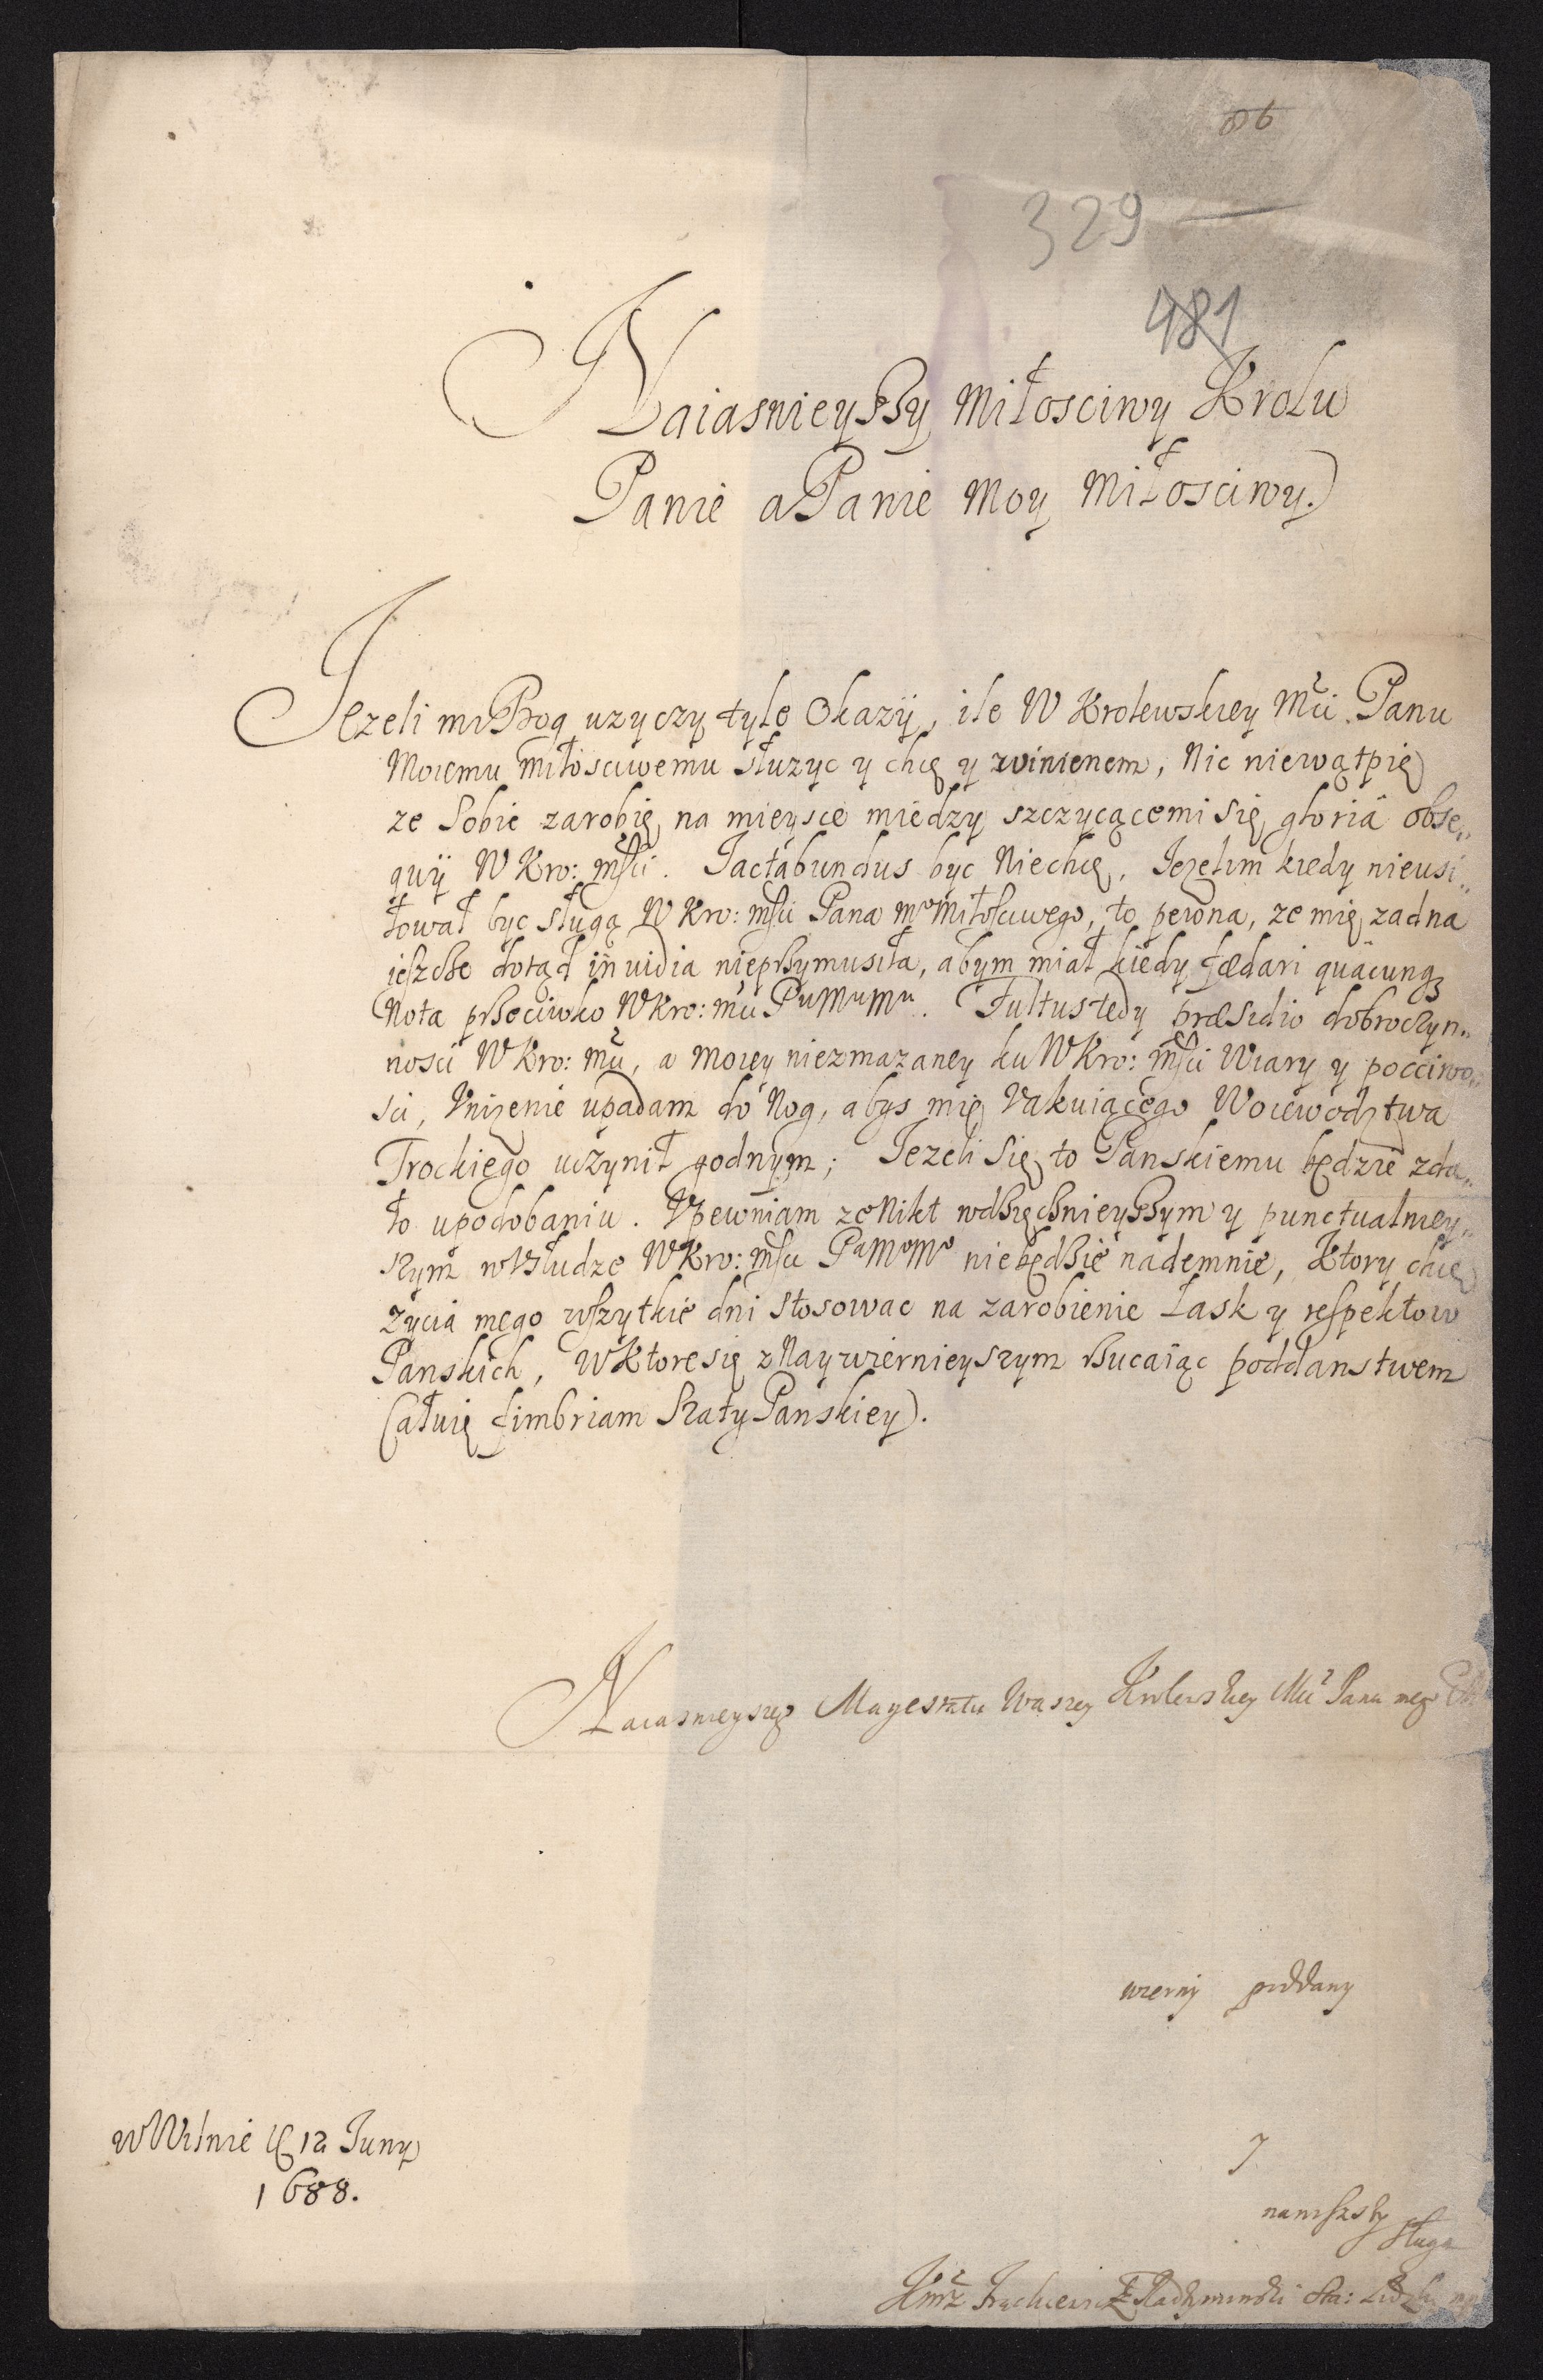 86
329
481
Naiasnieyszy Miłosciwy Krolu
Panie a Panie Moy Miłosciwy.
Jezeli mi Bog uzyczy tyle Okazÿ, ile W Krolewskiey Mci Panu
Moiemu miłosciwemu słuzyc y chcę y zwinienem, Nic niewątpię
ze Sobie zarobię na mieysce miedzy szczycącemi się gloriâ obse„
quÿ W Kro: Mści. Jactabundus byc Niechcę. Jezelim kiedy nieusi„
łował byc sługą W Kro: Mści Pana mo Miłosciwego, to pewna, ze mię zadna
ieszcze dotąd invidia nieprzymusiła, abym miał kiedy fœdari quâcunq
Nota przeciwko W Kro: Mci PuMuMu. Fultus tedy præsidio dobroczyn„
nosci W Kro: Mci, a moiey niezmazaney ku W Kro: Mści Wiary y pocciwo„
sci, Vnizenie upadam do Nog, abys mię Vakuiącego Woiewodztwa
Trockiego uczynił godnym; Jezeli Się to Panskiemu będzie zda„
ło upodobaniu. Vpewniam ze Nikt wdzięcznieyszym y punctualniey„
szym w Vsłudze W Kro: Mści PaMoMo niebędzie nademnie, Ktory chcę
zycia mego wszytkie dni stosowac na zarobienie Łask y respektow
Panskich, W Ktore się z Naywiernieyszym rzucaiąc poddanstwem
Całuię fimbriam Szaty Panskiey.
Naiasnieyszego Mayestatu Waszey Krolewskiey Mci Pana mego
wierny poddany
w Wilnie 12 Juny
1688.
J
naniszszy
sługa
Radzyminski Sta: Lidzki